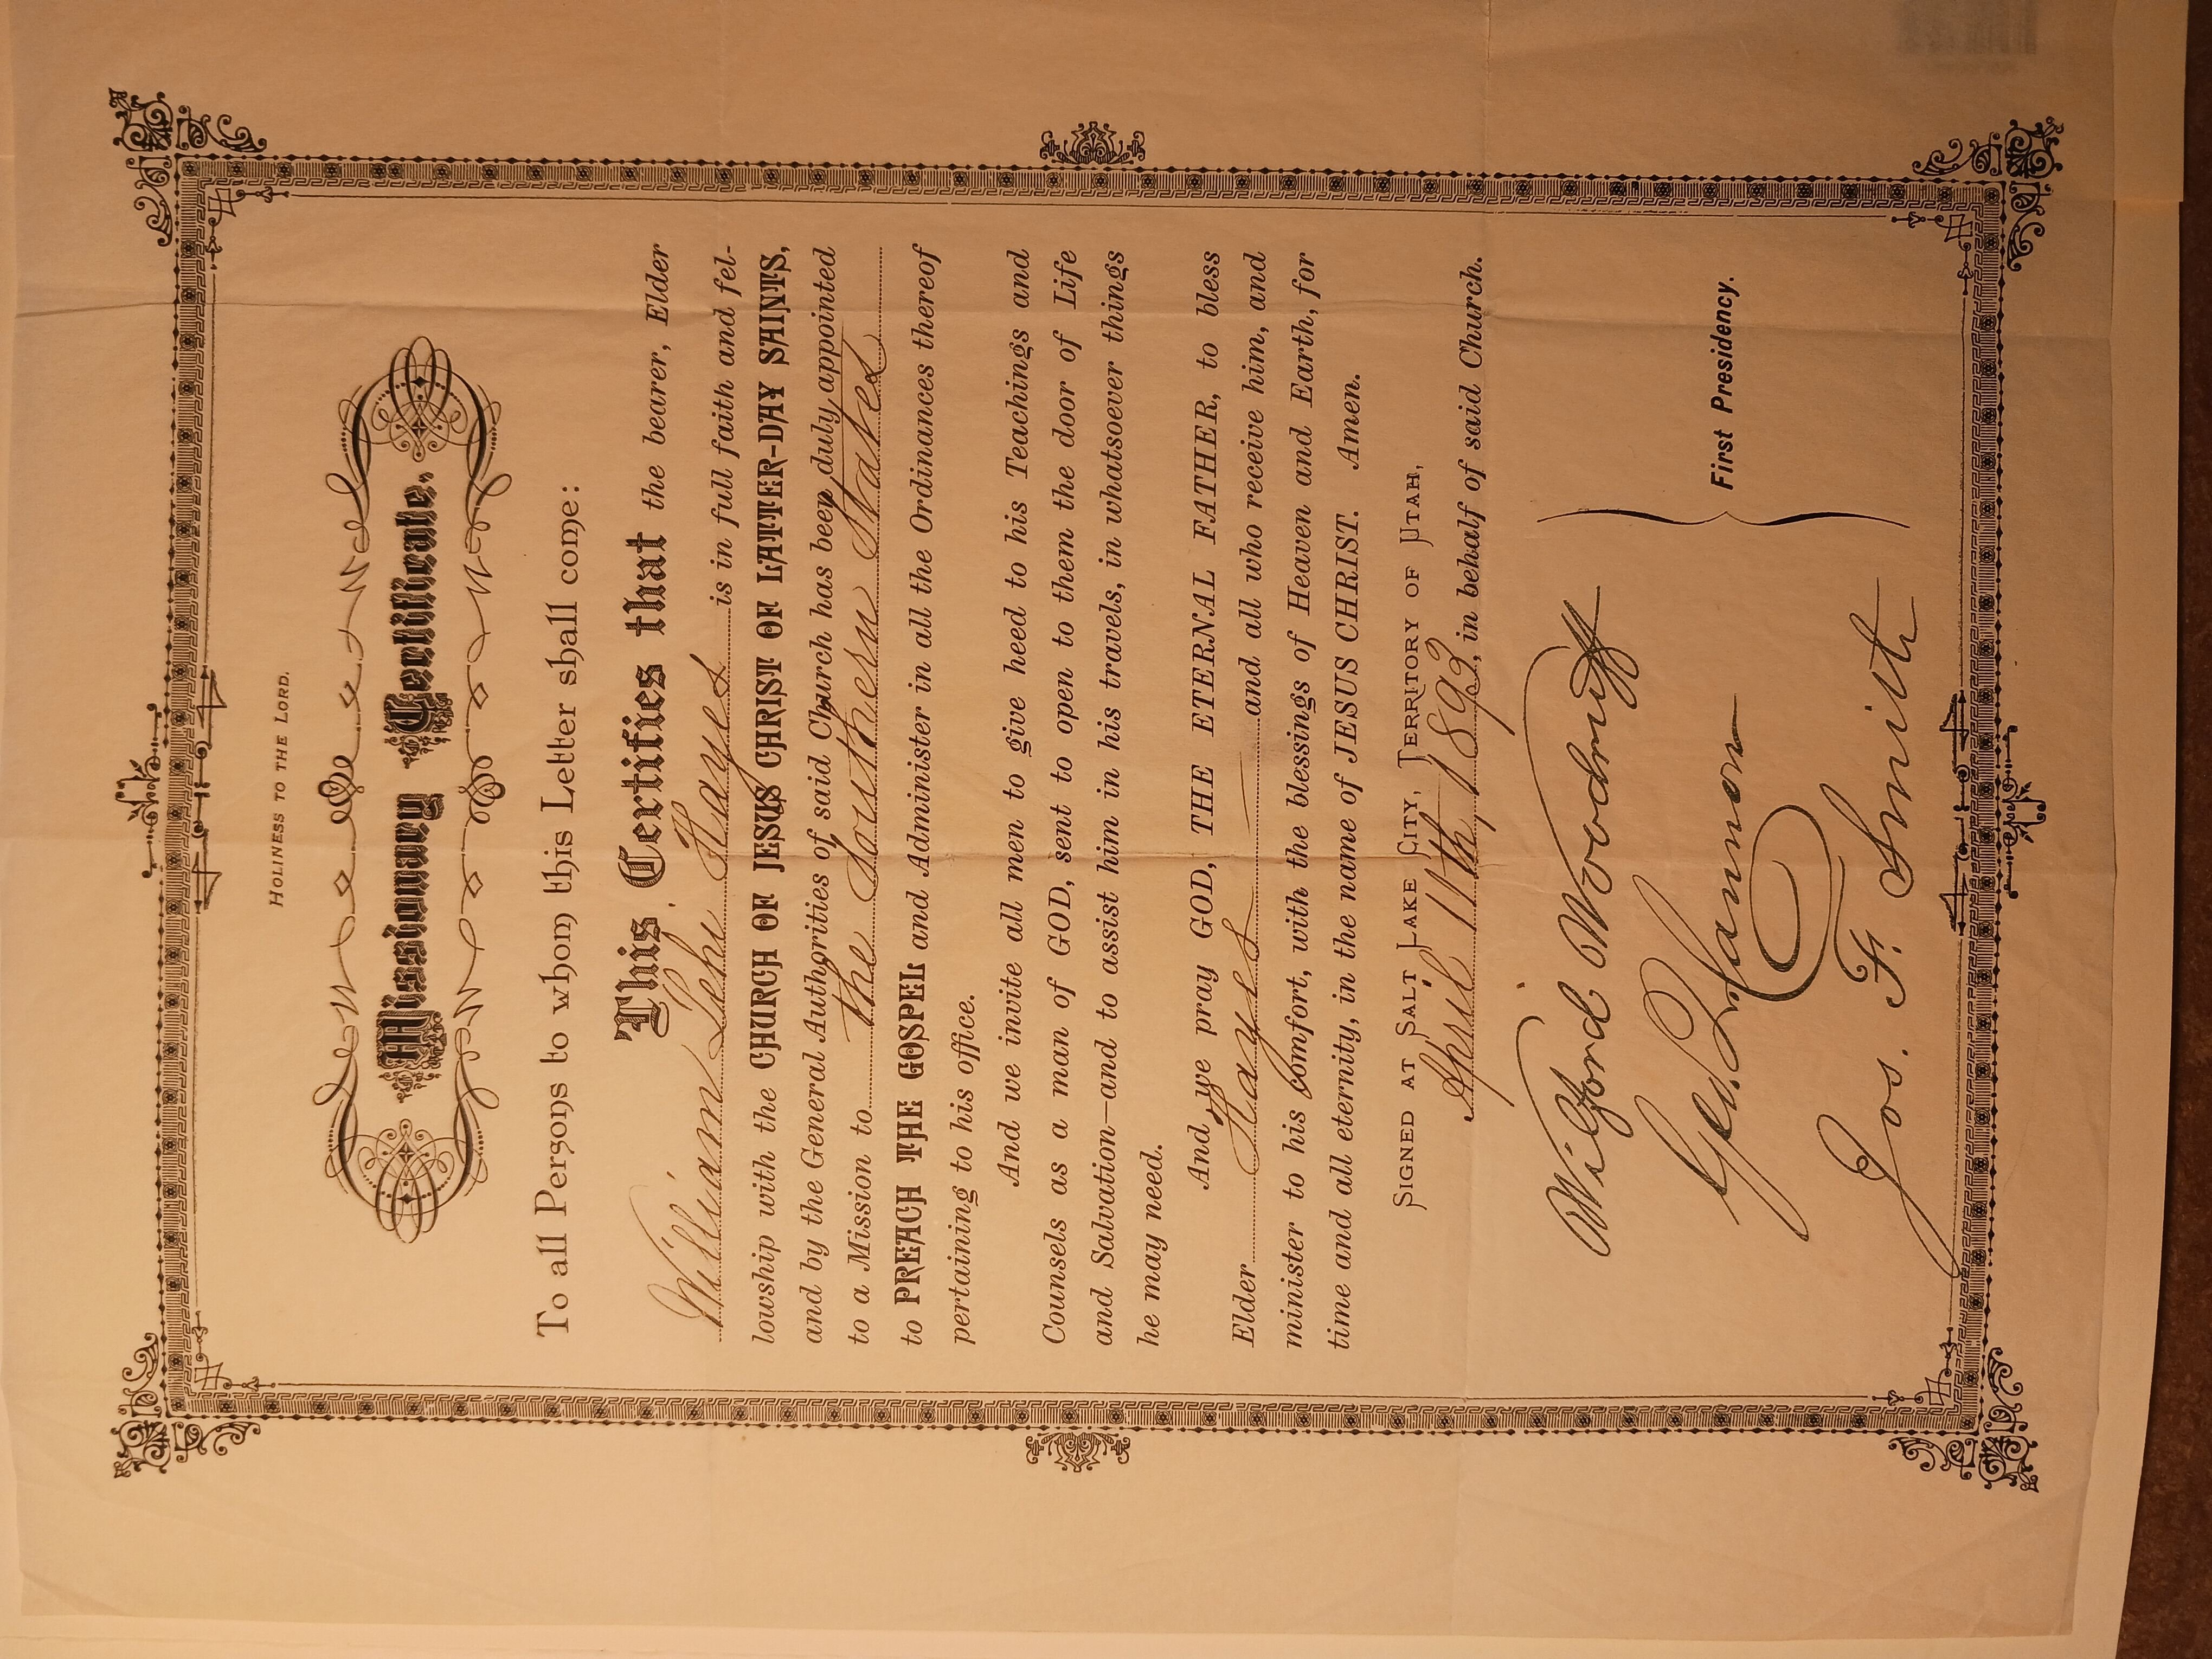 HOLINESS TO THE LORD.
Missionary Certificate.
To all Persons to whom this Letter shall come:
This Certifies that the bearer, Elder
William Lehi Hayes is in full faith and fel-
lowship with the CHURCH OF JESUS CHRIST OF LATTER-DAY SAINTS,
and by the General Authorities of said Church has been duly appointed
to a Mission to the Southern States
to PREACH THE GOSPEL and Administer in all the Ordinances thereof
pertaining to his office.
And we invite all men to give heed to his Teachings and
Counsels as a man of GOD, sent to open to them the door of Life
and Salvation—and to assist him in his travels, in whatsoever things
he may need.
And we pray GOD, THE ETERNAL FATHER, to bless
Elder Hayes and all who receive him, and
minister to his comfort, with the blessings of Heaven and Earth, for
time and all eternity, in the name of JESUS CHRIST. Amen.
SIGNED AT SALT LAKE CITY, TERRITORY OF UTAH,
April 11th, 1893, in behalf of said Church.
Wilford Woodruff
Geo. Q. Cannon
Jos. F. Smith
First Presidency.